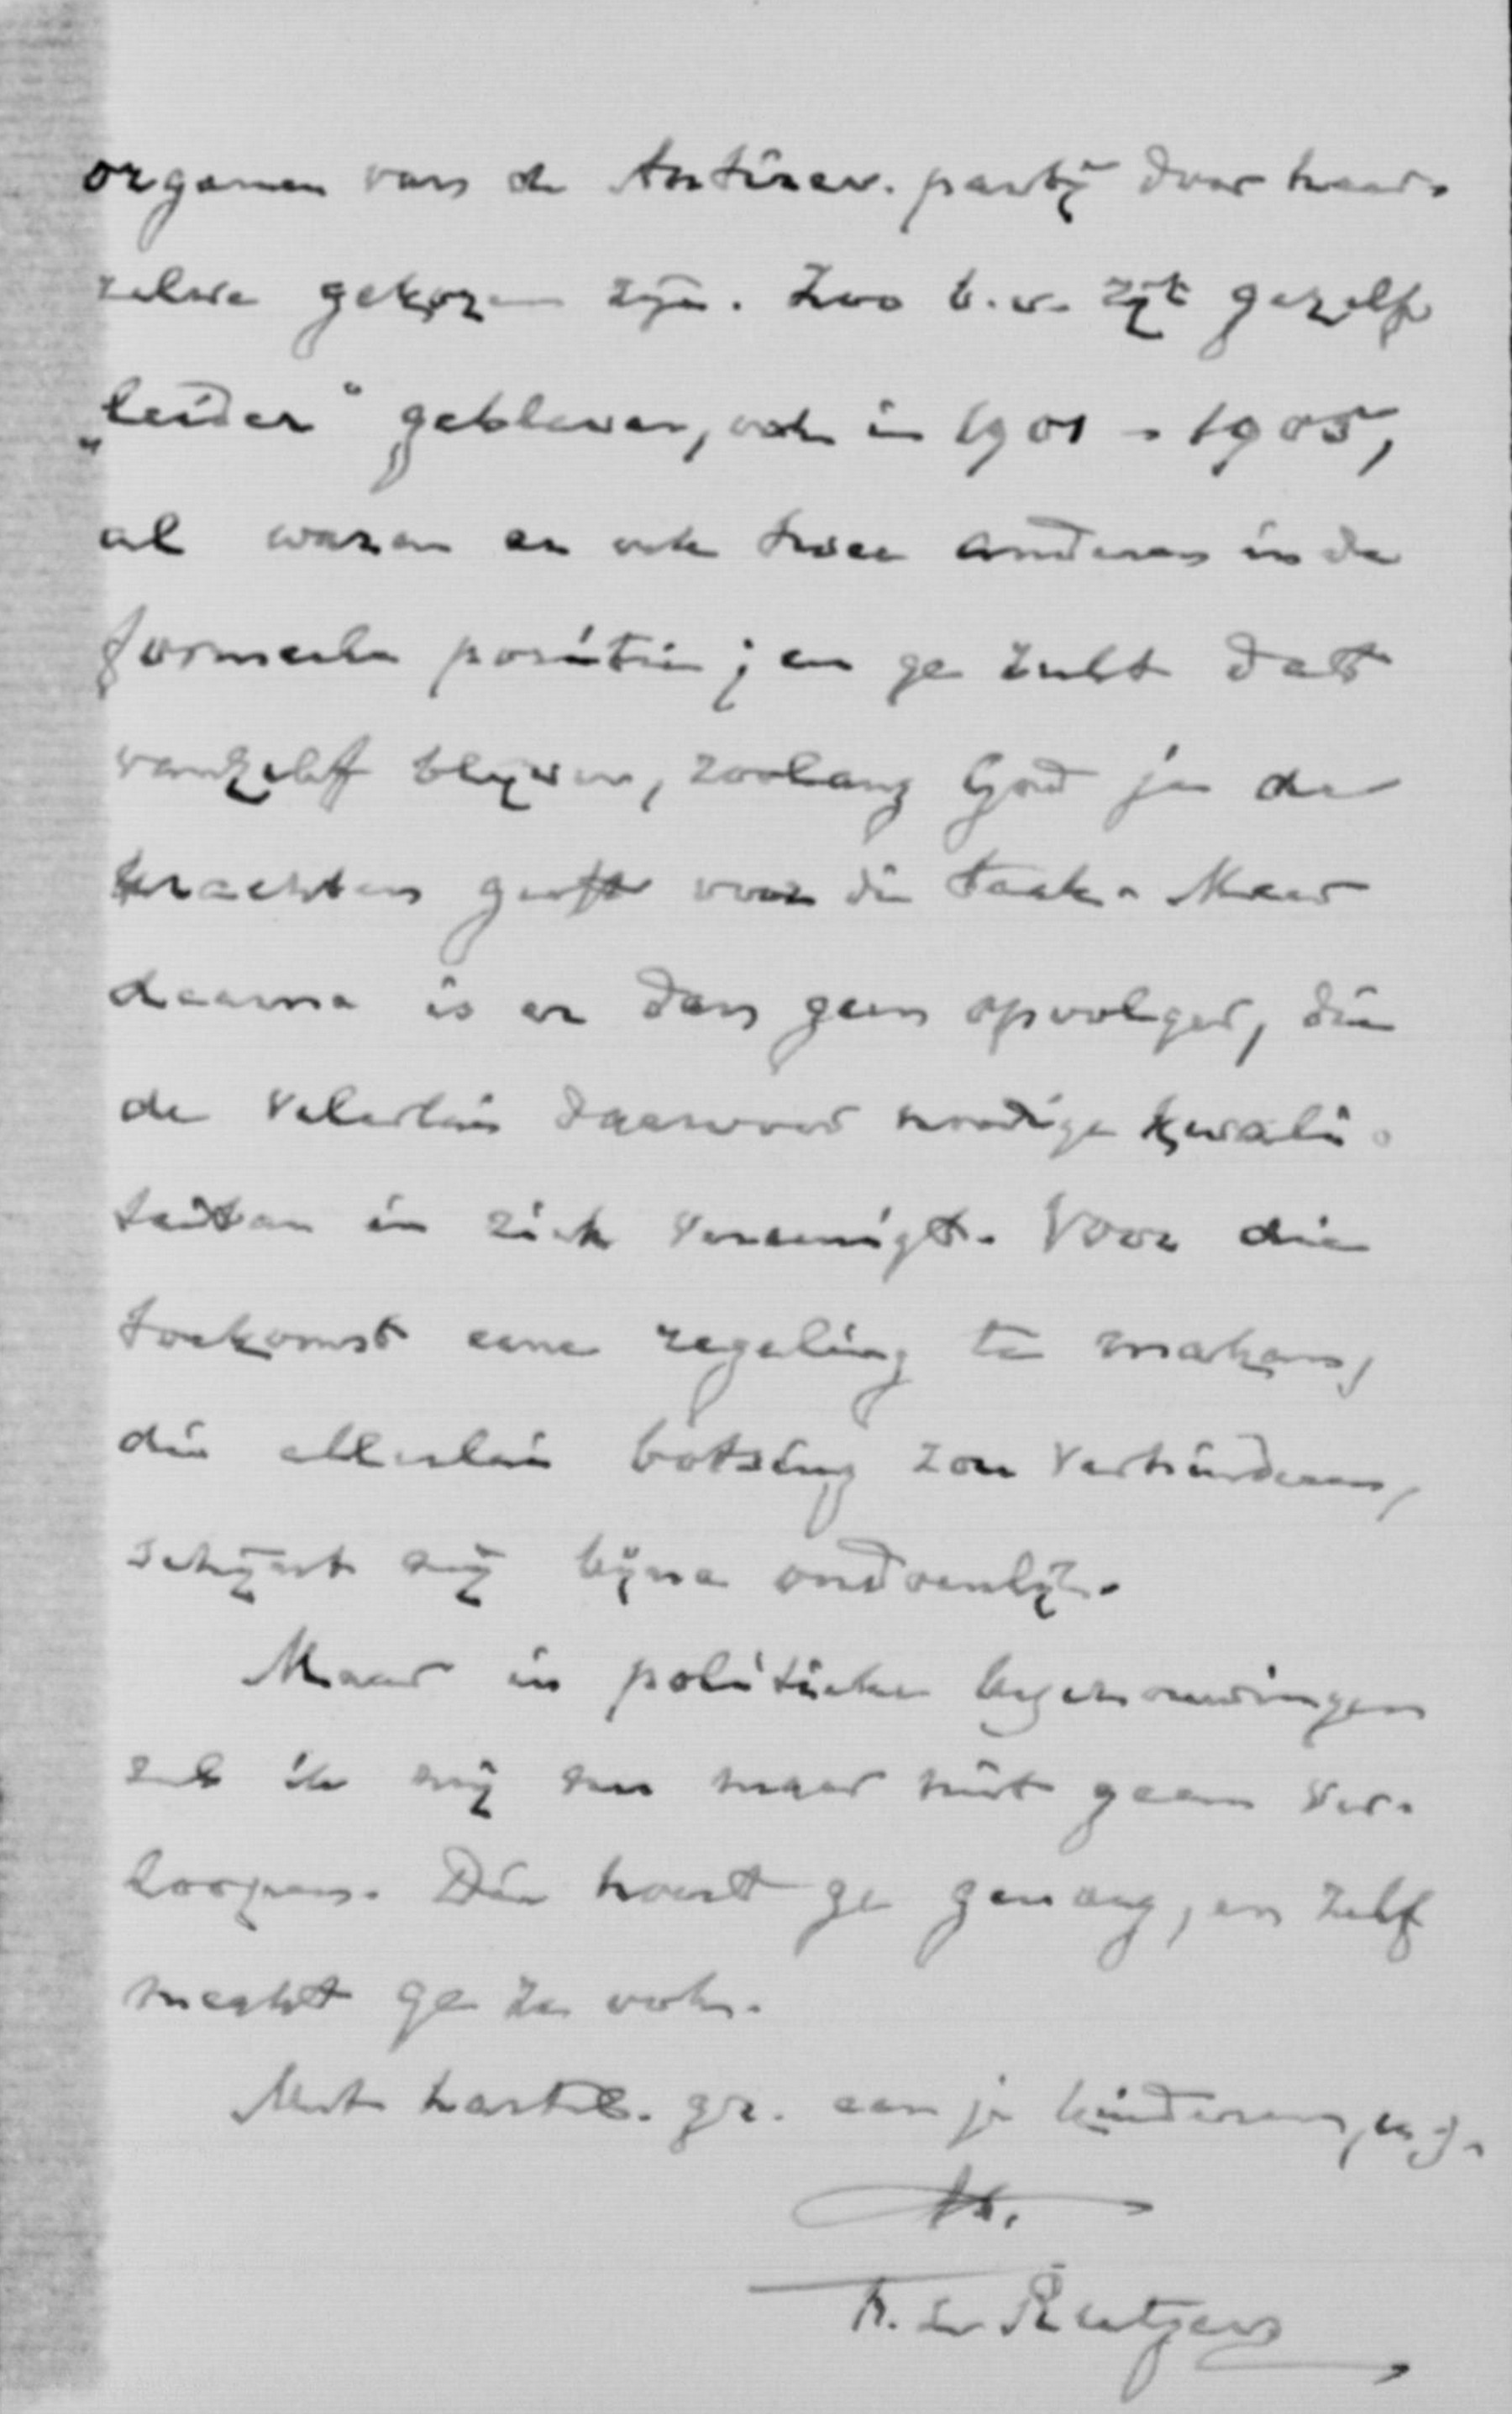 organen van de Antirev. partij door haar-
zelve gekozen zijn. Zoo b.v. zijt ge zelf
„leider" gebleven, ook in 1901-1905,
al waren er ook twee anderen in de
formeele positie; en ge zult dat
vanzelf blijven, zoolang God je de
krachten geeft voor die taak. Maar
daarna is er dan geen opvolger, die
de velerlei daarvoor noodige kwali-
teiten in zich vereenigt. Voor die
toekomst eene regeling te maken,
die allerlei botsing zou verhinderen,
schijnt mij bijna ondoenlijk.
Maar in politieke beschouwingen
zal ik mij nu maar niet gaan ver-
loopen. Die hoort ge genoeg, en zelf
maakt ge ze ook.
Met hartel. gr. aan je kinderen,
tt.
F. L. Rutgers